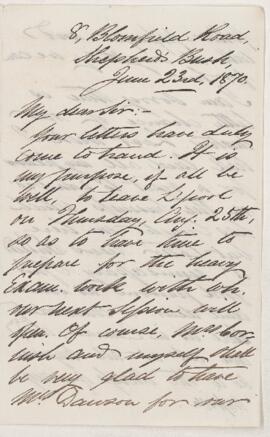 8, Blomfield Road,
Shepherd's Bush,
June 23rd, 1870.
My dear Sir:-
Your letters have duly
come to hand. It is
my purpose, if all be
well, to leave L'pool
on Thursday, Aug. 25th,
so as to have time to
prepare for the heavy
Exam. work with wh.
our next Session will
open. Of course, Mrs Cor
nish and myself shall
be very glad to have
Mrs Dawson for our